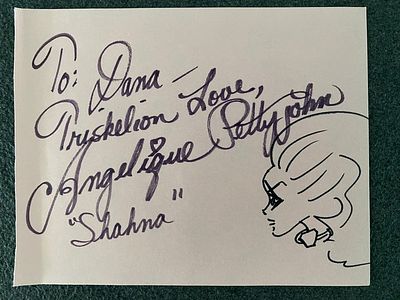 To: Dana —
Triskelion Love,
Angelique Pettyjohn
"Shahna"